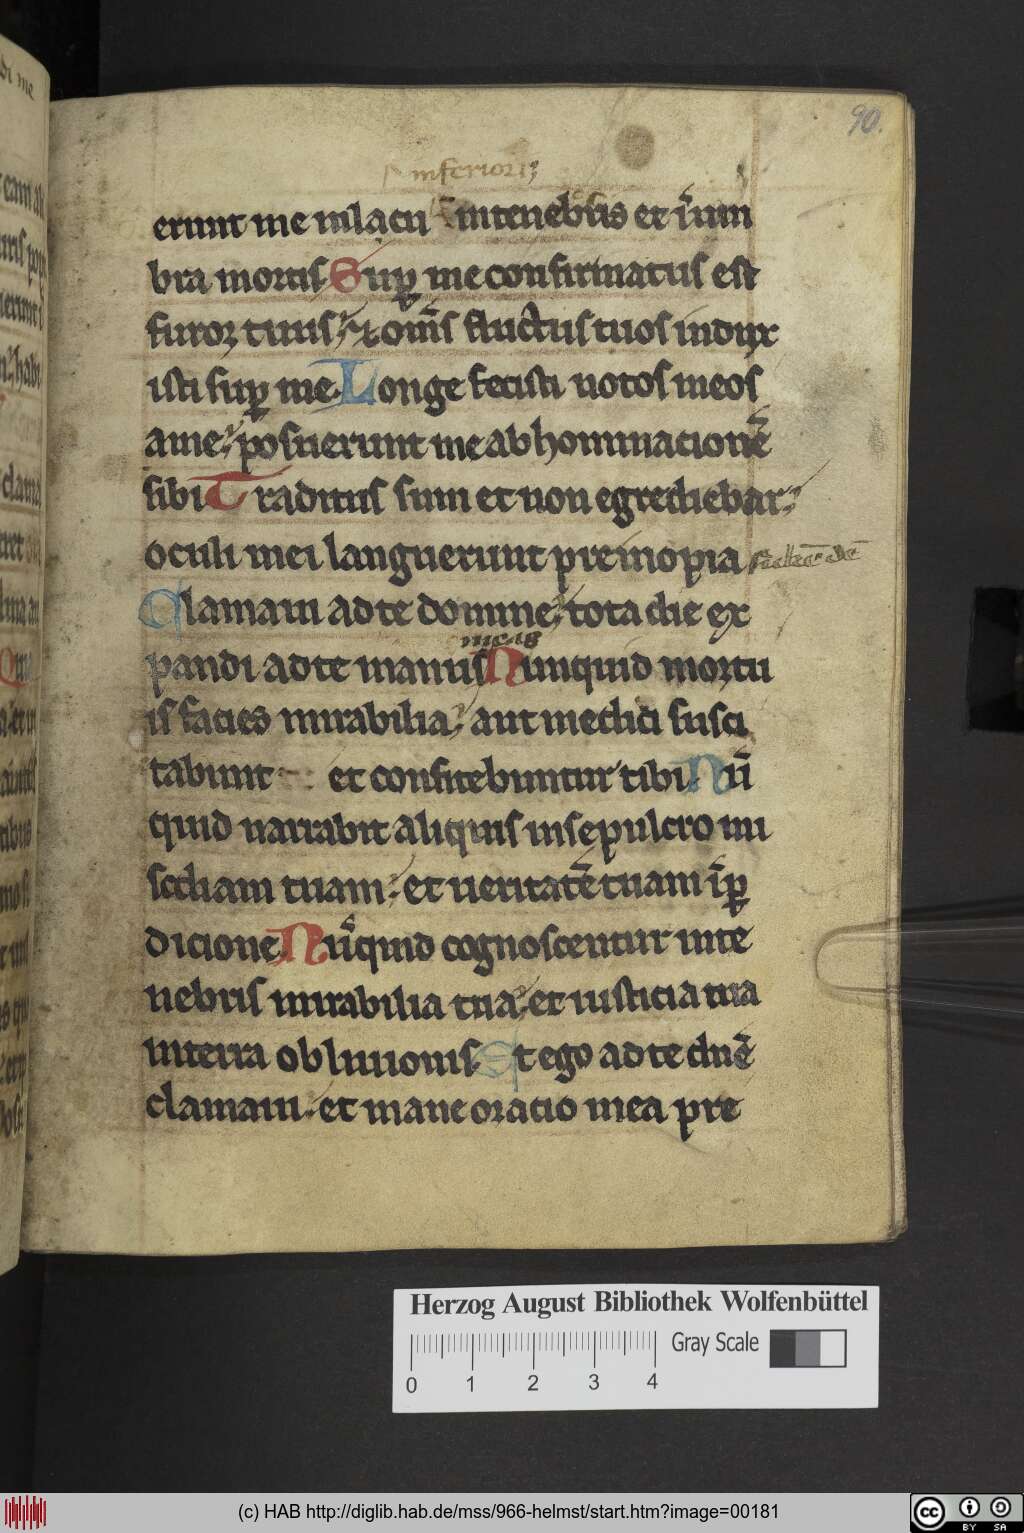 90.
inferiori
erunt me in lacu in tenebris et i um
bra mortis Sup me confirmatus est
furor tuus et om̄s fluctus tuos indux
isti sup me Longe fecisti notos meos
a me posuerunt me abhominacionē
sibi Traditus sum et non egrediebar
oculi mei languerunt pre inopia
Clamavi ad te domine tota die ex
pandi ad te manus Nunquid mortu
meas
is facies mirabilia aut medici susci
tabunt et confitebuntur tibi Nū
quid narrabit aliquis in sepulcro mi
sediam tuam et veritatē tuam ī p
dicione Nūquid cognoscentur in te
nebris mirabilia tua et iusticia tua
in terra oblivionis Et ego ad te dnē
clamavi et mane oracio mea pre
Herzog August Bibliothek Wolfenbüttel
Gray Scale
0 1 2 3 4
(c) HAB http://diglib.hab.de/mss/966-helmst/start.htm?image=00181
cc BY SA